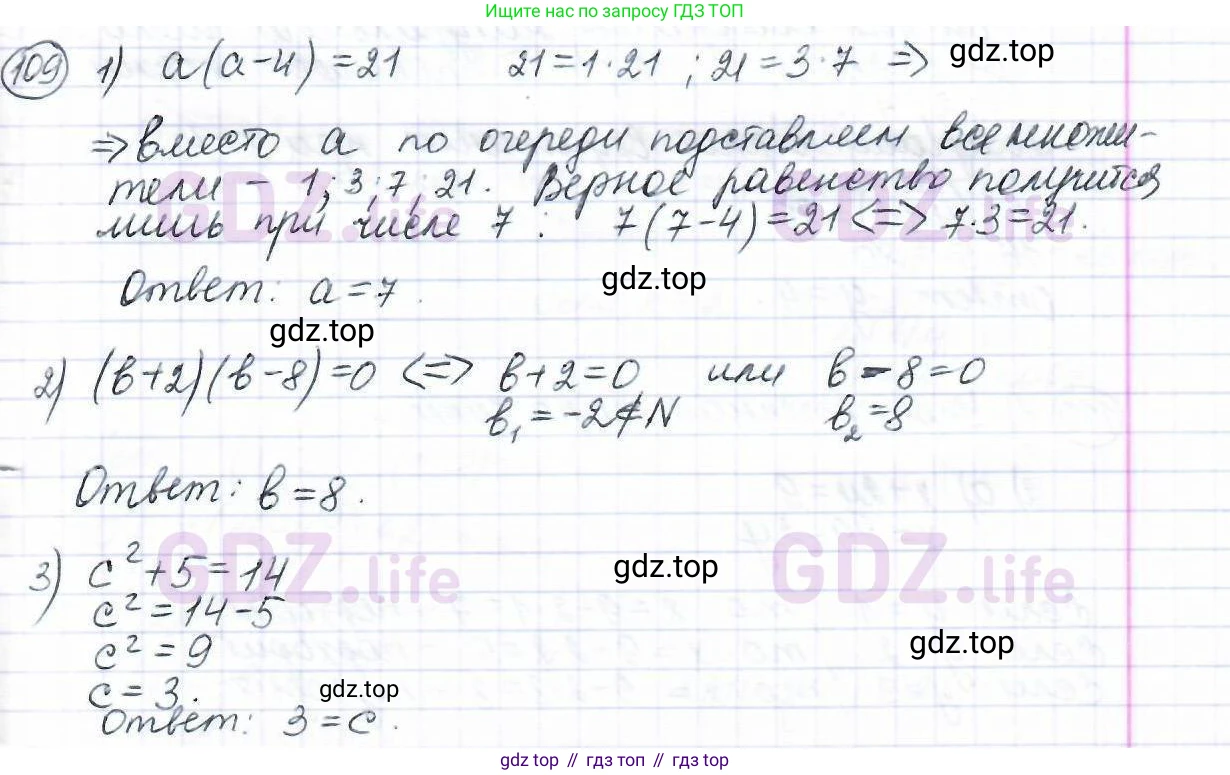 Ищите нас по запросу ГДЗ ТОП
109 1) a(a-4)=21 21=1·21 ; 21=3·7 => gdz.top
=> вместо a по очереди подставляем все множи-
тели - 1; 3; 7; 21. Верное равенство получится
лишь при числе 7 : 7(7-4)=21 <=> 7·3=21.
GDZ.life GDZ.life
Ответ: a=7. gdz.top
gdz.top
2) (в+2)(в-8)=0 <=> в+2=0 или в-8=0
в₁=-2∉N в₂=8
Ответ: в=8.
3) c²+5=14 gdz.top
GDZ.life GDZ.life
c²=14-5
c²=9 gdz.top
c=3. gdz.top
Ответ: 3=c.
gdz top // гдз топ // gdz top